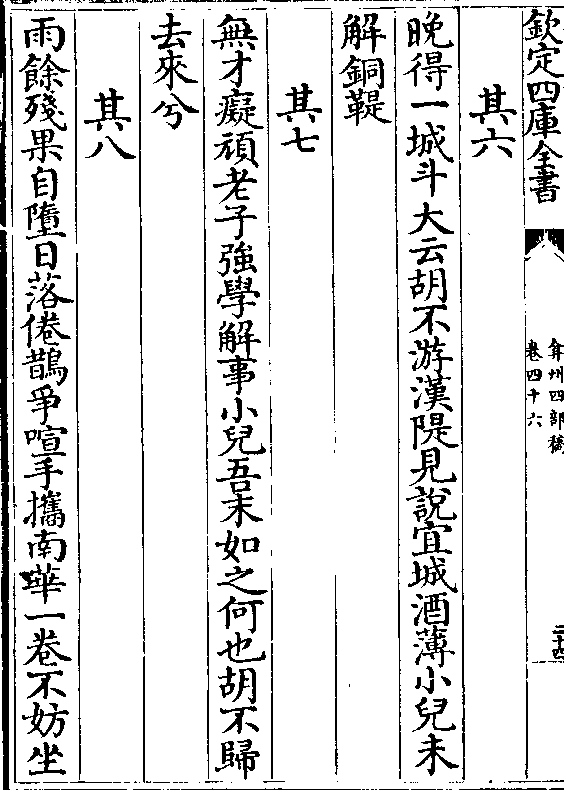 欽定四庫全書
弇州四部稿
卷四十六
二十四
其六
晚得一城斗大云胡不游漢隄見說宜城酒薄小兒未
解銅鞮
其七
無才癡頑老子強學解事小兒吾末如之何也胡不歸
去來兮
其八
雨餘殘果自墮日落倦鵲爭喧手攜南華一卷不妨坐